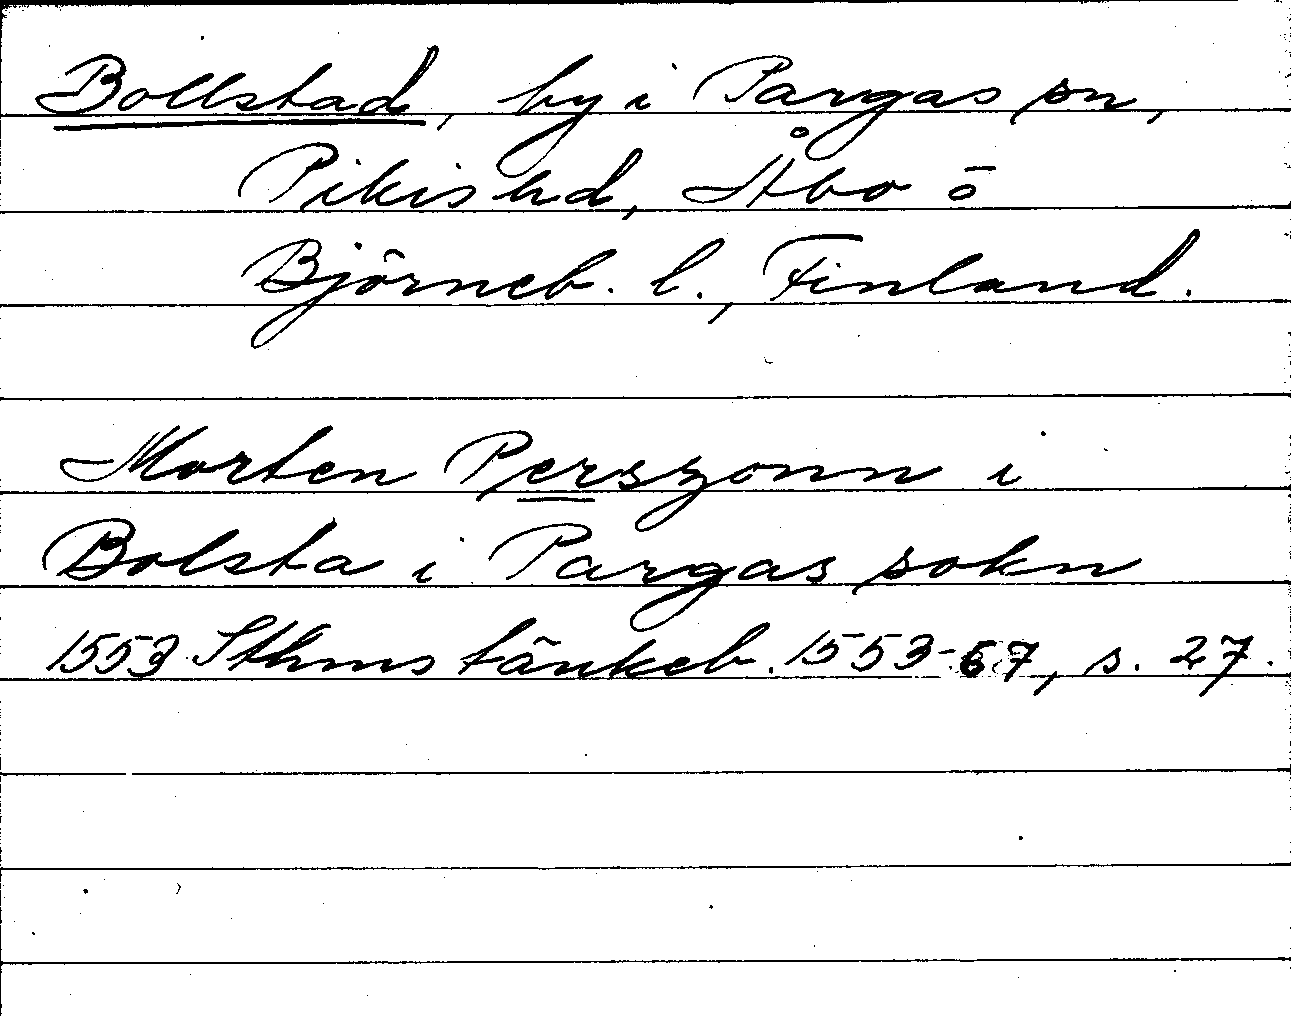 Bollstad, by i Pargas sn,
Pikis hd, Åbo o
Björneb. l., Finland.
Morten Perszonn i
Bolsta i Pargas sokn
1553 Sthms tänkeb. 1553-67, s. 27.